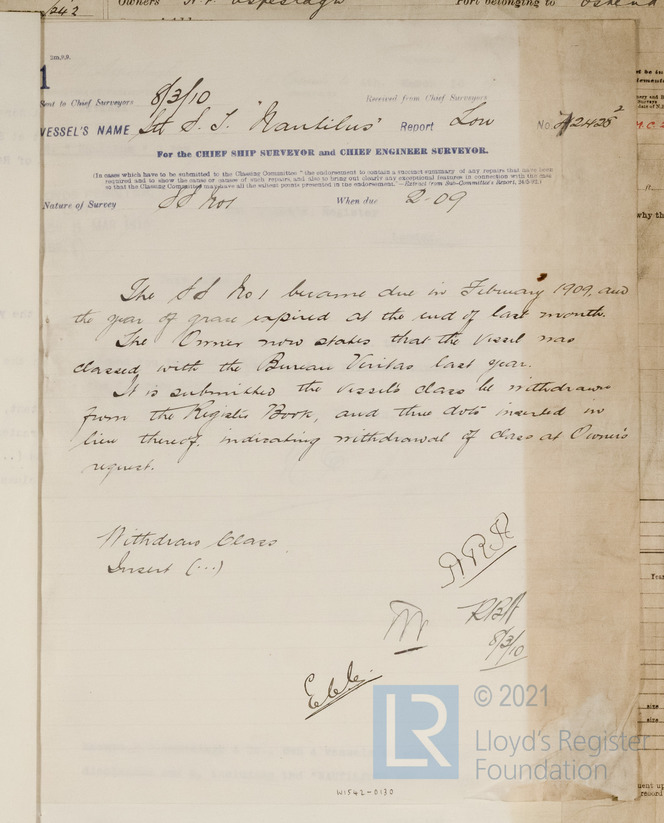 242 Owners Port belonging to Ostend
1
Sent to Chief Surveyors 8/3/10 Received from Chief Surveyors
VESSEL'S NAME St S. T. "Nautilus" Report Low No. 72425
For the CHIEF SHIP SURVEYOR and CHIEF ENGINEER SURVEYOR.
(In cases which have to be submitted to the Classing Committee "the endorsement to contain a succinct summary of any repairs that have been
required and to show the cause or causes of such repairs, and also to bring out clearly any exceptional features in connection with the case
so that the Classing Committee may have all the salient points presented in the endorsement."—Extract from Sub-Committee's Report,
Nature of Survey SS No1 When due 2-09
The SS No 1 became due in February 1909, and
the year of grace expired at the end of last month.
The Owner now states that the vessel was
classed with the Bureau Veritas last year.
It is submitted the vessel's class be withdrawn
from the Register Book, and three dots inserted in
lieu thereof, indicating withdrawal of class at Owner's
request.
Withdraw Class
Insert (...)
RBH
8/3/10
LR
© 2021
Lloyd's Register
Foundation
W1542-0130